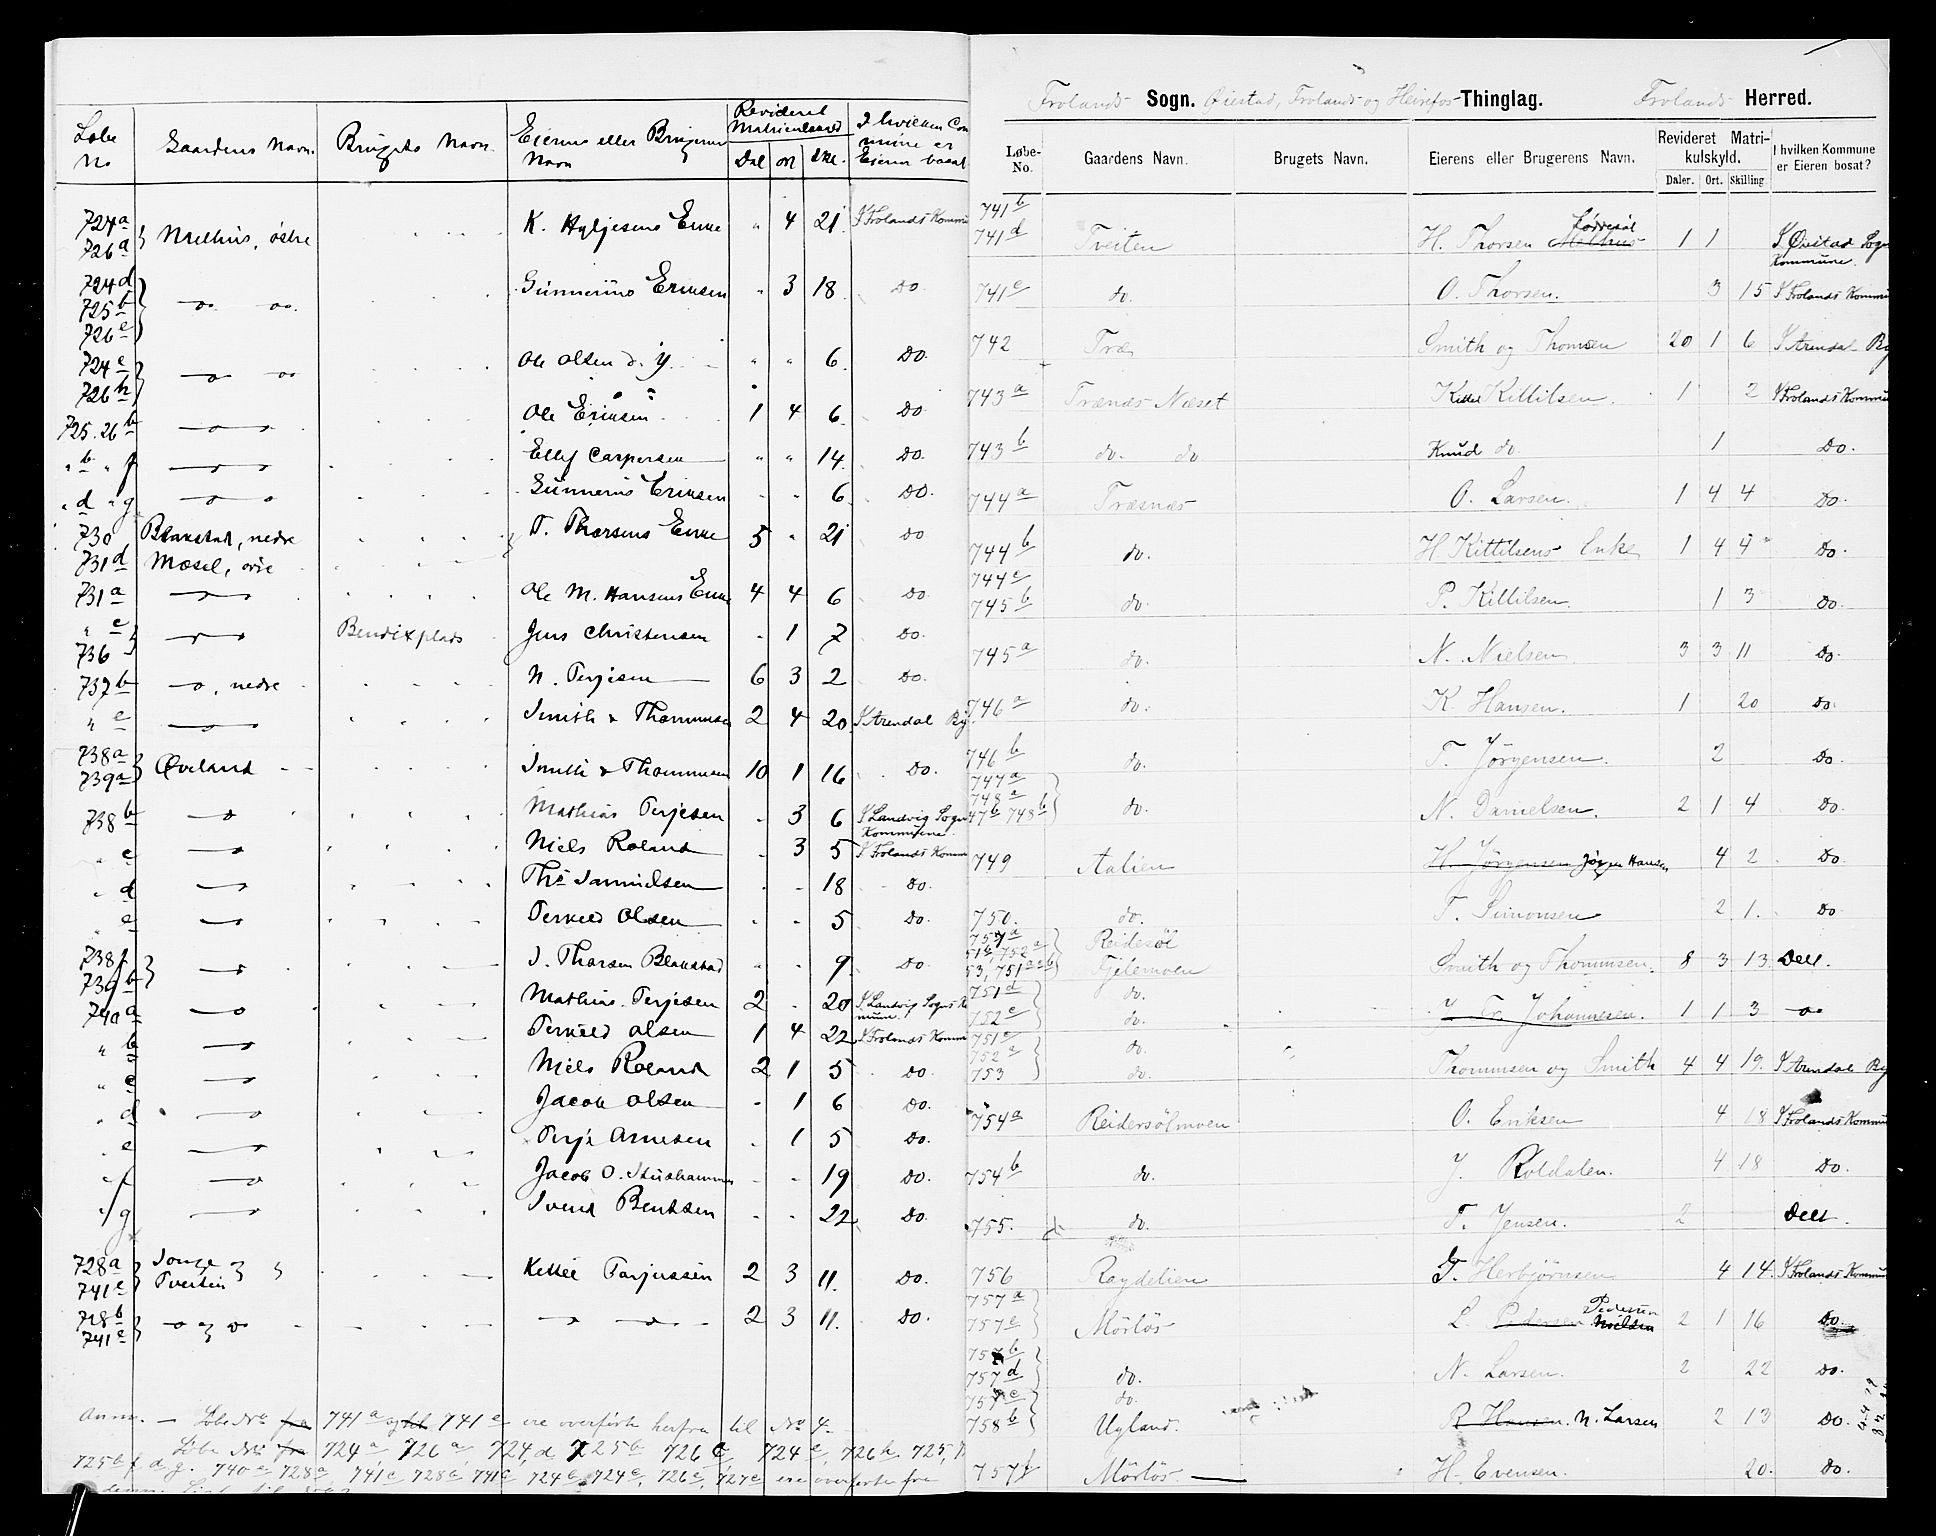 Løbe No | Gaardens Navn. | Brugets Navn | Eierens eller Brugerens Navn | Revideret Matrienlskyld Dal ort Skl. | I hvilken Commune er Eieren bosat
724a 726a } Melhus, østre | K. Asljesens Enke | " 4 21 | I Frolands Kommu
724d 725b 726e } -o- -o- | Gunnerius Eriksen | " 3 18 | Do
724c 726h } -o- -o- | Ole Olsen d. y. | " " 6 | Do.
725.26b -o- | Ole Eriksen | 1 4 6 | Do
" b " f -o- | Ellef Caspersen | " " 14 | Do.
" d " g -o- | Gunnerius Eriksen | - " 6 | Do.
730 Blakstad, nedre | T. Thorsens Enke | 5 " 21 | Do
731d Mosel, øvre
731a -o- | Ole M. Hansens Enke | 4 4 6 | Do
" c 736 } -o- | Bendixplads | Jens Christensen | - 1 7 | Do.
737b -o-, nedre | N. Terjesen | 6 3 2 | Do.
" c -o- | Smith & Thommesen | 2 4 20 | I Arendal By
738a 739a } Øveland | Smith & Thommesen | 10 1 16 | Do.
738b -o- | Mathias Terjesen | - 3 6 | I Landvig Sogns Kommune.
" c -o- | Niels Roland | - 3 5 | I Frolands Komm
" d -o- | Ths Samuelsen | - - 18 | Do.
" e -o- | Terkild Olsen | - - 5 | Do.
738f 739b } -o- | J. Thorsen Blakstad | " - 9 | Do.
740a -o- | Mathias Terjesen | 2 - 20 | I Landvig Sogns Kommun.
" b -o- | Terkild Olsen | 1 4 22 | I Frolands Komm
" c -o- | Niels Roland | 2 1 5 | Do.
" d -o- | Jacob Olsen | - 1 6 | Do.
" e -o- | Terje Arnesen | - 1 5 | Do.
" f -o- | Jacob O. Stushammer | - - 19 | Do.
" g -o- | Svend Bentsen | - - 22 | Do.
728a 741c } Songe og Tveiten | Kittel Tarjussen | 2 3 11. | Do.
728b 741e } -o- og -o- | -o- -o- | 2 3 11. | Do.
Anm. — Løbe No 741a og 741e ere overførte herfra til No 4.
Løbe No 724a 726a, 724,d 725b 726e, 724c, 726h 725,
725b f. d. g. 740c 728a, 741c 728b, 741e 724b, 724c, 726c, 727c ere overførte fra
Frolands Sogn. Øiestad, Frolands og Heirefos Thinglag. Frolands Herred.
Løbe-No. | Gaardens Navn. | Brugets Navn. | Eierens eller Brugerens Navn. | Revideret Matrikulskyld. Daler. Ort. Skilling. | I hvilken Kommune er Eieren bosat?
741b 741d | Tveiten | H. Thorsen Melhus Løddesøl | 1 1 | I Øiestad Sogns Kommune.
741c | do. | O. Thorsen. | 3 15 | I Frolands Kommu
742 | Træ | Smith og Thomsen | 20 1 6 | I Arendal By
743a | Trænæs Næset | Kittel Kittilsen. | 1 2 | I Frolands Kommu
743b | do. do | Knud do. | 1 | Do.
744a | Træsnæs | O. Larsen. | 1 4 4 | Do.
744b | do. | H. Kittilsens Enke | 1 4 4 | Do.
744c 745b | do. | P. Kittilsen. | 1 3 | Do.
745a | do. | N. Nielsen | 3 3 11 | Do.
746a | do. | K Hansen. | 1 20 | Do.
746b | do. | T. Jörgensen. | 2 | Do.
747a 748a 47b 748b } do. | N. Danielsen. | 2 1 4 | Do.
749 | Aalien | H. Jörgensen Jörgen Hansen | 4 2 | Do.
750. | do. | T. Simonsen | 2 1. | Do
757a 51b, 752a 53, 751a b } Reidesøl Fjelemoen | Smith og Thommsen. | 8 3 13. | Dell.
751d 752c } do. do. | Johannesen. | 1 1 3 | -o-
751c 752e 753 } do. do. | Thommsen og Smith | 4 4 19. | I Arendal By
754a | Reidersölmoen | O. Eriksen | 4 18 | I Frolands Kommu
754b | do. | J. Roldalen. | 4 18 | Do.
755. | do. | T. Jensen. | 2 | Dell.
756 | Raydelien | G. Herbjörnsen | 4 14. | I Frolands Kommun
757a 757e } Mörlös | L. Pedersen Noelsen Pedersen | 2 1 16 | Do.
757b 757d } do. | N. Larsen. | 2 22 | Do.
757c 758b } do. Ugland. | R Hansen. N. Larsen | 2 13 | Do.
757f | Mörlös. | H. Evensen. | 20. | Do.